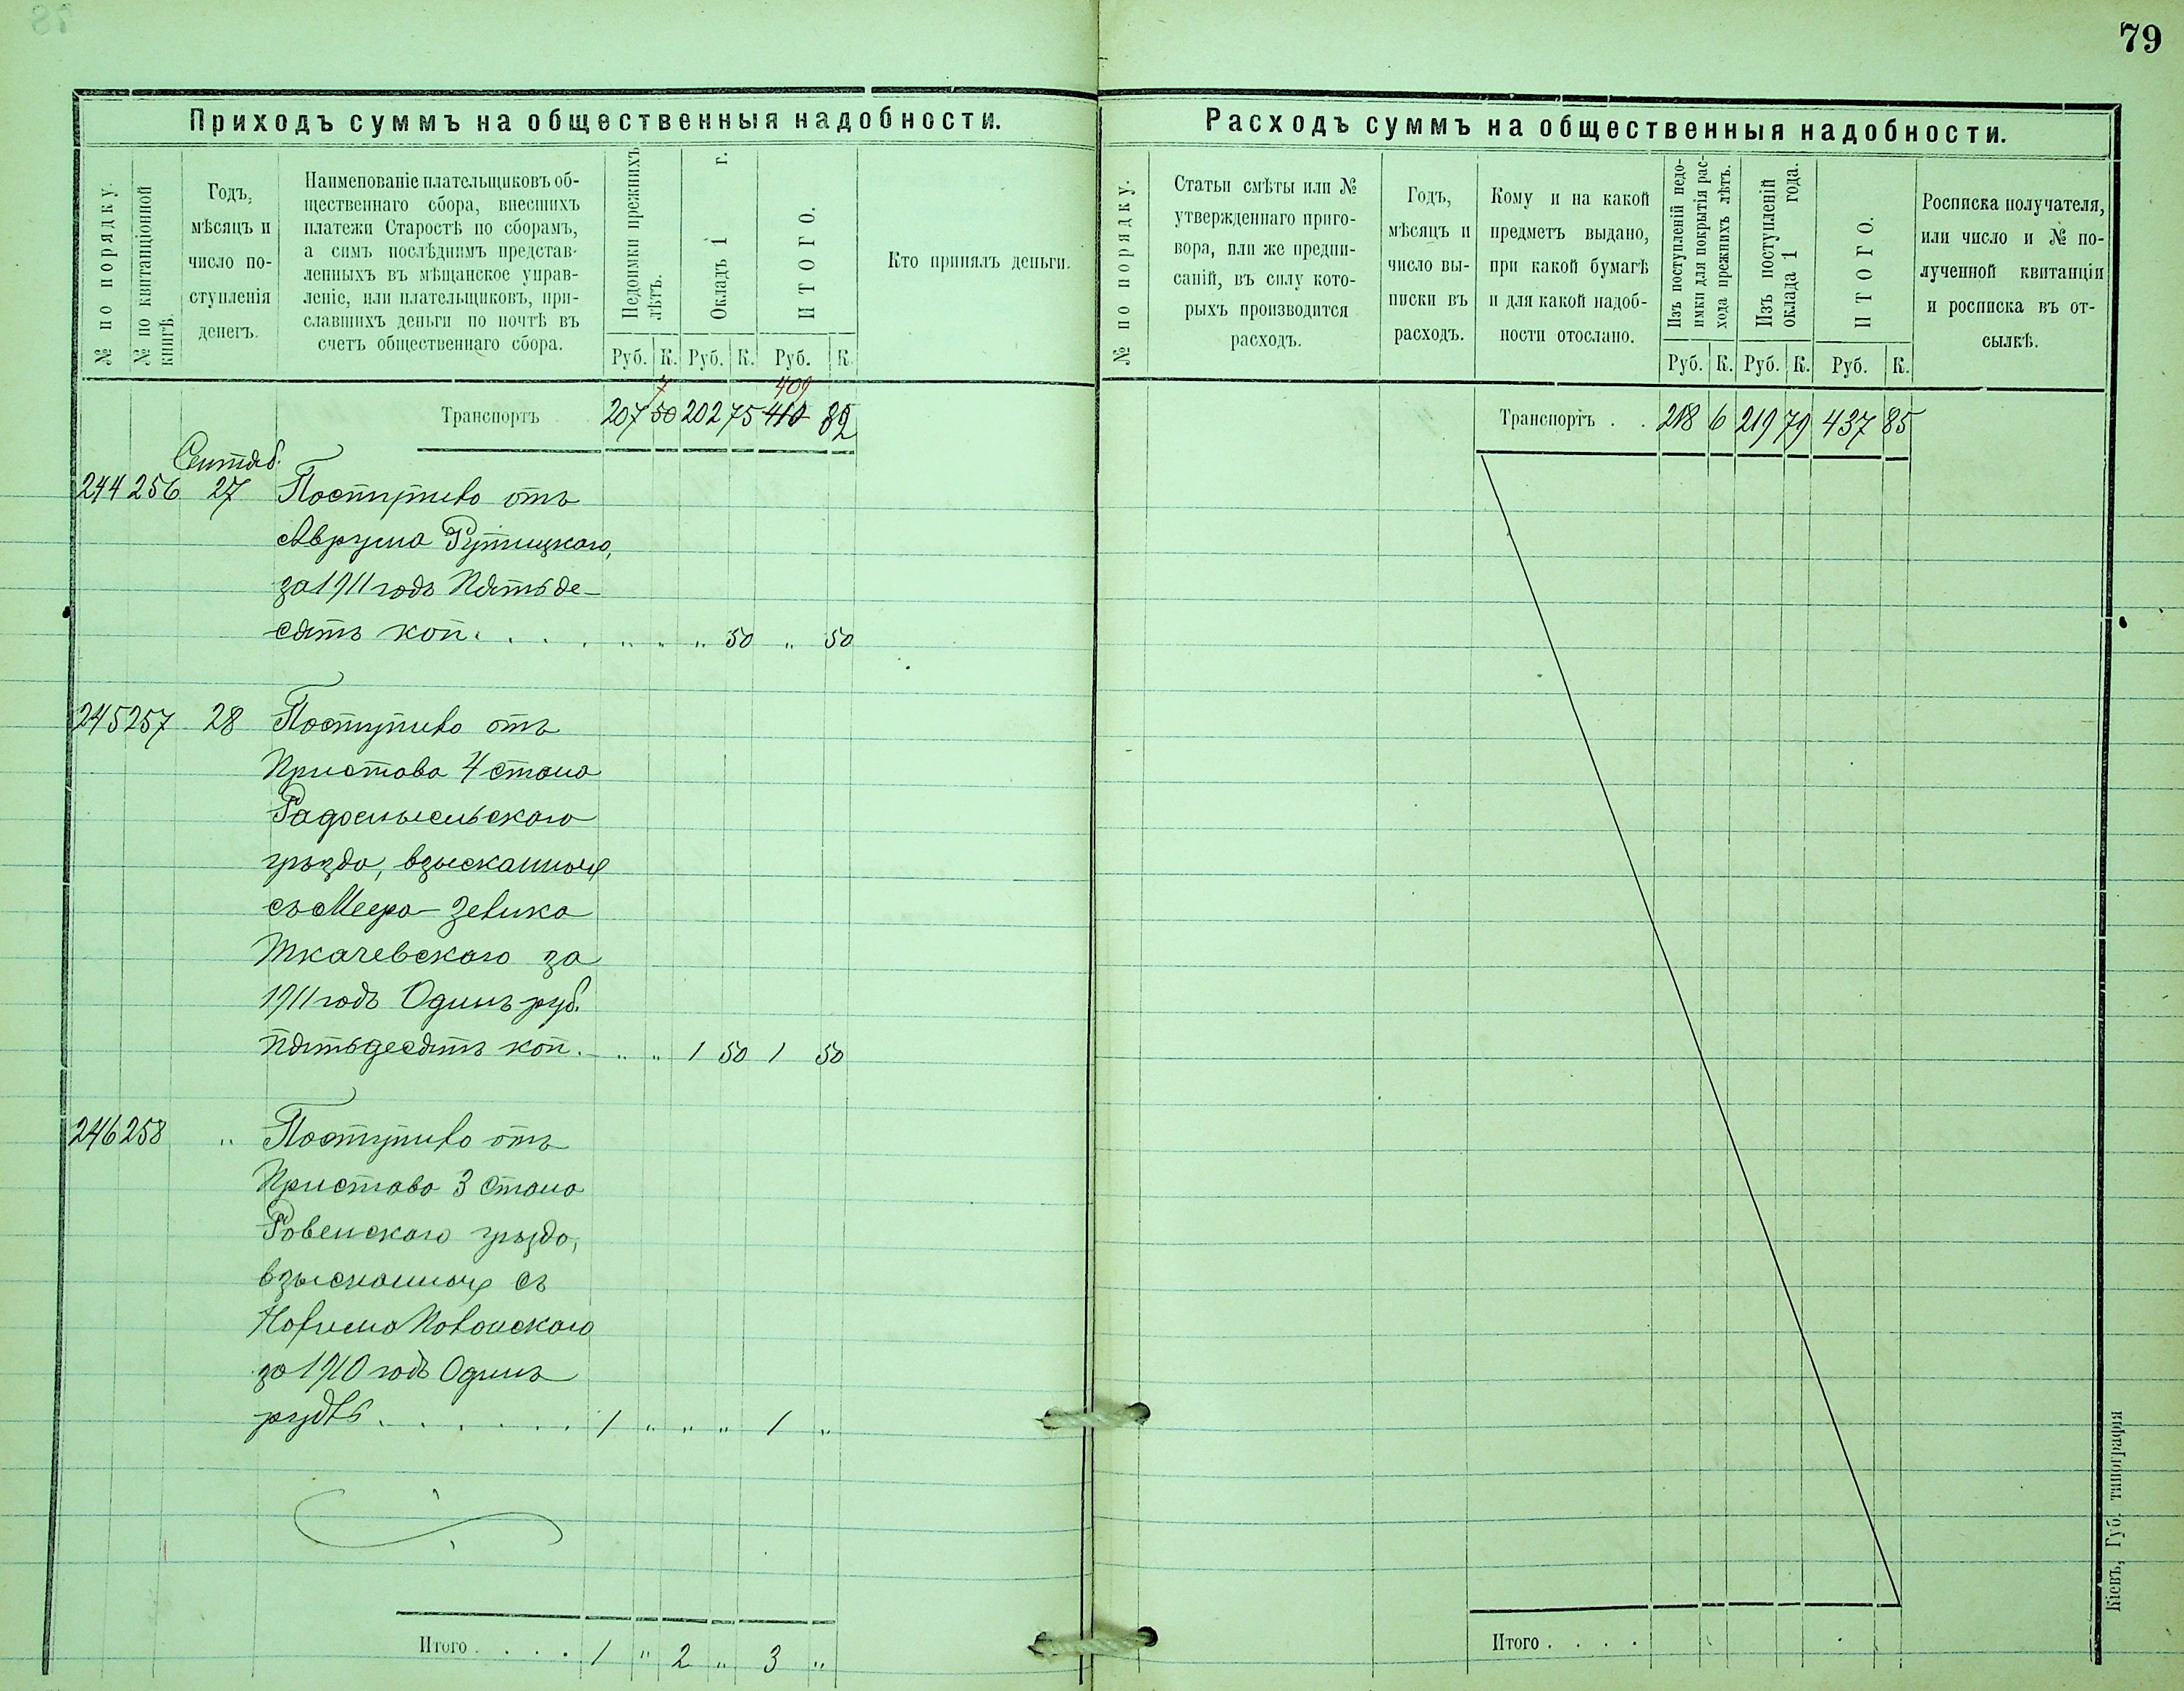 79
Приходъ суммъ на общественныя надобности.
№ по порядку.
№ по квитанціонной
книгѣ.
Годъ,
мѣсяцъ и
число по-
ступленія
денегъ.
Наименованіе плательщиковъ об-
щественнаго сбора, внесшихъ
платежи Старостѣ по сборамъ,
а симъ послѣднимъ представ-
ленныхъ въ мѣщанское управ-
леніе, или плательщиковъ, при-
славшихъ деньги по почтѣ въ
счетъ общественнаго сбора.
Недоимки прежнихъ
лѣтъ.
Окладъ 1 г.
ИТОГО.
Руб. К. Руб. К. Руб. К.
Кто принялъ деньги.
7 409
Транспортъ 207 50 202 75 410 82
Сентяб.
244 256 27 Поступило отъ
Аврума Рутицкаго,
за 1911 годъ Пятьде-
сятъ коп. . . . „ „ „ 50 „ 50
245 257 28 Поступило отъ
Пристава 4 стана
Радомысльскаго
уѣзда, взысканныя
съ Меера-Зелика
Ткачевскаго за
1911 годъ Одинъ руб.
пятьдесятъ коп. „ „ 1 50 1 50
246 258 „ Поступило отъ
Пристава 3 стана
Ровенскаго уѣзда,
взысканныя съ
за 1910 годъ Одинъ
рубль . . . . . . 1 „ „ „ 1 „
Итого . . . . 1 „ 2 „ 3 „
Расходъ суммъ на общественныя надобности.
№ по порядку.
Статьи смѣты или №
утвержденнаго приго-
вора, или же предпи-
саній, въ силу кото-
рыхъ производится
расходъ.
Годъ,
мѣсяцъ и
число вы-
писки въ
расходъ.
Кому и на какой
предметъ выдано,
при какой бумагѣ
и для какой надоб-
ности отослано.
Изъ поступленій недо-
имки для покрытія рас-
хода прежнихъ лѣтъ.
Изъ поступленій
оклада 1 года.
ИТОГО.
Руб. К. Руб. К. Руб. К.
Росписка получателя,
или число и № по-
лученной квитанціи
и росписка въ от-
сылкѣ.
Транспортъ . . 218 6 219 79 437 85
Итого . . . .
Кіевъ, Губ. типографія